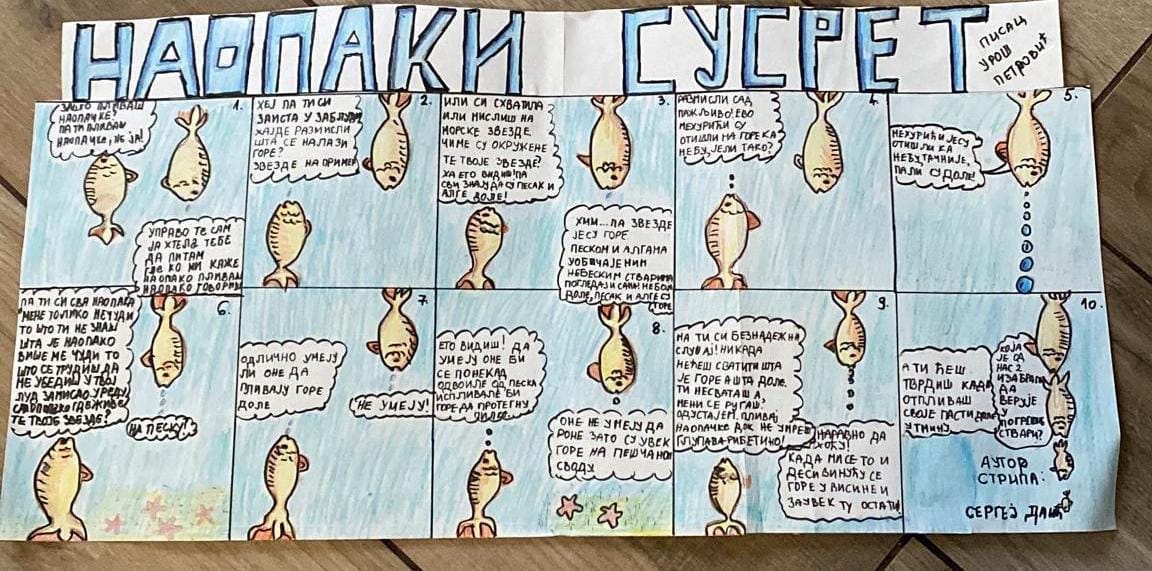 НАОПАКИ СУСРЕТ
ПИСАЦ
УРОШ
ПЕТРОВИЋ
1.
ЗАШТО ПЛИВАШ
НАОПАЧКЕ?
ПА ТИ ПЛИВАШ
НАОПАЧКЕ, НЕ ЈА!
УПРАВО ТО САМ
ЈА ХТЕЛА ТЕБЕ
ДА ПИТАМ
КАЖЕ
НАОПАКО ПЛИВАМ
НАОПАКО ГОВОРИМ
2.
ХЕЈ ПА ТИ СИ
ЗАИСТА У ЗАБЛУДИ
ХАЈДЕ РАЗМИСЛИ
ШТА СЕ НАЛАЗИ
ГОРЕ?
ЗВЕЗДЕ НА ПРИМЕР
3.
ИЛИ СИ СХВАТИЛА
ИЛИ МИСЛИШ НА
МОРСКЕ ЗВЕЗДЕ.
ЧИМЕ СУ ОКРУЖЕНЕ
ТЕ ТВОЈЕ ЗВЕЗДЕ?
ХА ЕТО ВИДИШ! ПА
СВИ ЗНАЈУ ДА СУ ПЕСАК И
АЛГЕ ДОЛЕ!
ХММ...ПА ЗВЕЗДЕ
ЈЕСУ ГОРЕ
ПЕСКОМ И АЛГАМА
УОБИЧАЈЕНИМ
НЕБЕСКИМ СТВАРИМА
ПОГЛЕДАЈ И САМА: НЕБО ЈЕ
ДОЛЕ, ПЕСАК И АЛГЕ СУ
ГОРЕ
4.
РАЗМИСЛИ САД
ПАЖЉИВО! ЕВО
МЕХУРИЋИ СУ
ОТИШЛИ НА ГОРЕ КА
НЕБУ, ЈЕЛИ ТАКО?
5.
МЕХУРИЋИ ЈЕСУ
ОТИШЛИ КА
НЕБУ, ТАЧНИЈЕ,
ПАЛИ СУ ДОЛЕ!
6.
ПА ТИ СИ СВА НАОПАКА
МЕНЕ ТОЛИКО НЕ ЧУДИ
ТО ШТО ТИ НЕ ЗНАШ
ШТА ЈЕ НАОПАКО
ВИШЕ МЕ ЧУДИ ТО
ШТО СЕ ТРУДИШ ДА
МЕ УБЕДИШ У ТВОЈ
ЛУД ЗАМИСАО. У РЕДУ,
ГДЕ ЖИВЕ
ТЕ ТВОЈЕ ЗВЕЗДЕ?
НА ПЕСКУ!
7.
ОДЛИЧНО УМЕЈУ
ЛИ ОНЕ ДА
ПЛИВАЈУ ГОРЕ
ДОЛЕ
НЕ УМЕЈУ!
8.
ЕТО ВИДИШ! ДА
УМЕЈУ ОНЕ БИ
СЕ ПОНЕКАД
ОДВОИЛЕ ОД ПЕСКА
ИСПЛИВАЛЕ БИ
ГОРЕ ДА ПРОТЕГНУ
ОНЕ НЕ УМЕЈУ ДА
РОНЕ ЗАТО СУ УВЕК
ГОРЕ НА ПЕШЧАНОМ
СВОДУ
9.
ПА ТИ СИ БЕЗНАДЕЖНА
СЛУЧАЈ! НИКАДА
НЕЋЕШ СВАТИТИ ШТА
ЈЕ ГОРЕ А ШТА ДОЛЕ.
ТИ НЕСВАТАШ А
МЕНИ СЕ РУГАШ!
ОДУСТАЈЕМ. ПЛИВАЈ
НАОПАЧКЕ ДОК НЕ УМРЕШ
ГЛУПАВА РИБЕТИНО!
НАРАВНО ДА
ХОЋУ!
КАДА МИ СЕ ТО И
ДЕСИ ВИНУЋУ СЕ
ГОРЕ У ВИСИНЕ И
ЗАУВЕК ТУ ОСТАТИ!
10.
А ТИ ЋЕШ
ТВРДИШ КАДА
ОТПЛИВАШ
СВОЈЕ ПАСТИ ДОЛЕ
У ТМИНУ
КОЈА
ЈЕ ОД
НАС 2
ИЗАБРАЛА
ДА
ВЕРУЈЕ
У
ПОГРЕШНЕ
СТВАРИ?
АУТОР
СТРИПА:
СЕРГЕЈ